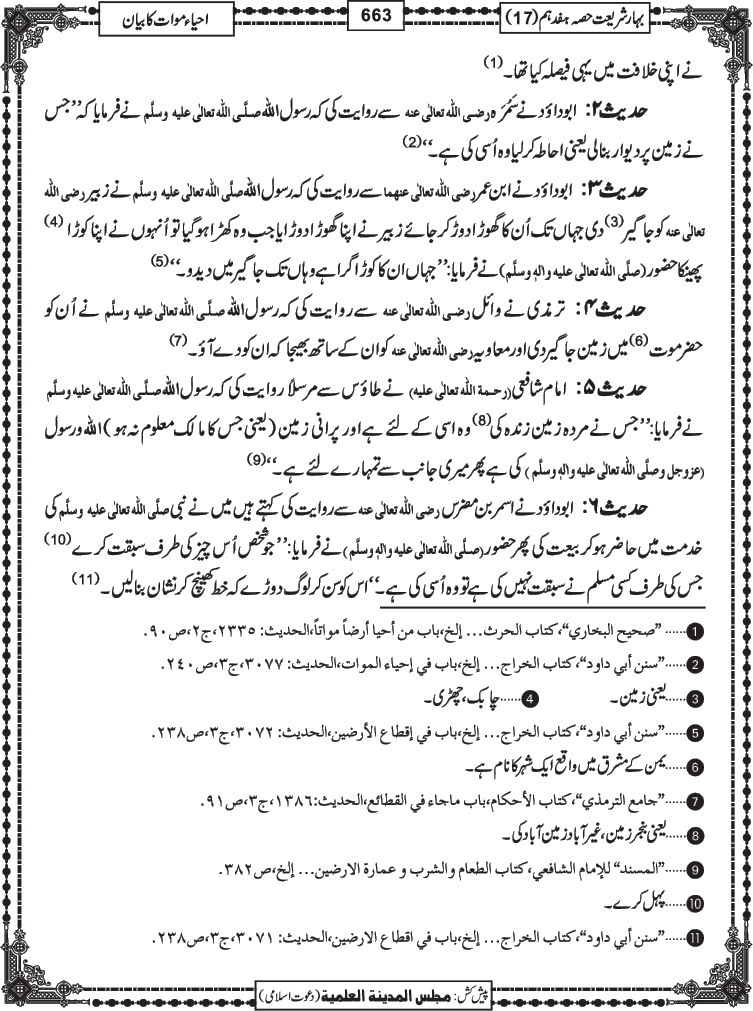 بہار شریعت حصہ ہفدہم (17)
663
احیاء موات کا بیان
نے اپنی خلافت میں یہی فیصلہ کیا تھا۔ (1)
حدیث ۲: ابوداؤد نے سَمُرَہ رضی اللہ تعالٰی عنہ سے روایت کی کہ رسول اللہ صلَّی اللہ تعالٰی علیہ وسلَّم نے فرمایا کہ ’’جس
نے زمین پر دیوار بنالی یعنی احاطہ کرلیا وہ اُسی کی ہے۔‘‘ (2)
حدیث ۳: ابوداؤد نے ابن عمر رضی اللہ تعالٰی عنہما سے روایت کی کہ رسول اللہ صلَّی اللہ تعالٰی علیہ وسلَّم نے زبیر رضی اللہ
تعالٰی عنہ کو جاگیر (3) دی جہاں تک اُن کا گھوڑا دوڑ کر جائے زبیر نے اپنا گھوڑا دوڑایا جب وہ کھڑا ہوگیا تو اُنہوں نے اپنا کوڑا (4)
پھینکا حضور (صلَّی اللہ تعالٰی علیہ واٰلہٖ وسلَّم) نے فرمایا: ’’جہاں ان کا کوڑا گرا ہے وہاں تک جاگیر میں دیدو۔‘‘ (5)
حدیث ۴: ترمذی نے وائل رضی اللہ تعالٰی عنہ سے روایت کی کہ رسول اللہ صلَّی اللہ تعالٰی علیہ وسلَّم نے اُن کو
حضر موت (6) میں زمین جاگیر دی اور معاویہ رضی اللہ تعالٰی عنہ کو ان کے ساتھ بھیجا کہ ان کو دے آؤ۔ (7)
حدیث ۵: امام شافعی (رحمۃ اللہ تعالٰی علیہ) نے طاؤس سے مرسلاً روایت کی کہ رسول اللہ صلَّی اللہ تعالٰی علیہ وسلَّم
نے فرمایا: ’’جس نے مردہ زمین زندہ کی (8) وہ اسی کے لئے ہے اور پرانی زمین (یعنی جس کا مالک معلوم نہ ہو) اللہ ورسول
(عزوجل وصلَّی اللہ تعالٰی علیہ واٰلہٖ وسلَّم) کی ہے پھر میری جانب سے تمہارے لئے ہے۔‘‘ (9)
حدیث ۶: ابوداؤد نے اسمر بن مضرس رضی اللہ تعالٰی عنہ سے روایت کی کہتے ہیں میں نے نبی صلَّی اللہ تعالٰی علیہ وسلَّم کی
خدمت میں حاضر ہوکر بیعت کی پھر حضور (صلَّی اللہ تعالٰی علیہ واٰلہٖ وسلَّم) نے فرمایا: ’’جو شخص اُس چیز کی طرف سبقت کرے (10)
جس کی طرف کسی مسلم نے سبقت نہیں کی ہے تو وہ اُسی کی ہے۔‘‘ اس کو سن کر لوگ دوڑے کہ خط کھینچ کر نشان بنالیں۔ (11)
1 ...... ”صحیح البخاري“، کتاب الحرث... إلخ، باب من أحیا أرضاً مواتاً، الحدیث: ۲۳۳۵، ج۲، ص۹۰.
2 ......”سنن أبي داود“، کتاب الخراج... إلخ، باب في إحیاء الموات، الحدیث: ۳۰۷۷، ج۳، ص۲۴۰.
3 ......یعنی زمین۔ 4 ......چابک، چھڑی۔
5 ......”سنن أبي داود“، کتاب الخراج... إلخ، باب في إقطاع الأرضین، الحدیث: ۳۰۷۲، ج۳، ص۲۳۸.
6 ......یمن کے مشرق میں واقع ایک شہر کا نام ہے۔
7 ......”جامع الترمذي“، کتاب الأحکام، باب ماجاء في القطائع، الحدیث: ۱۳۸۶، ج۳، ص۹۱.
8 ......یعنی بنجر زمین، غیر آباد زمین آباد کی۔
9 ......”المسند“ للإمام الشافعي، کتاب الطعام والشرب و عمارة الارضین... إلخ، ص۳۸۲.
10 ......پہل کرے۔
11 ......”سنن أبي داود“، کتاب الخراج... إلخ، باب في اقطاع الارضین، الحدیث: ۳۰۷۱، ج۳، ص۲۳۸.
پیش کش: مجلس المدینة العلمیة (دعوت اسلامی)